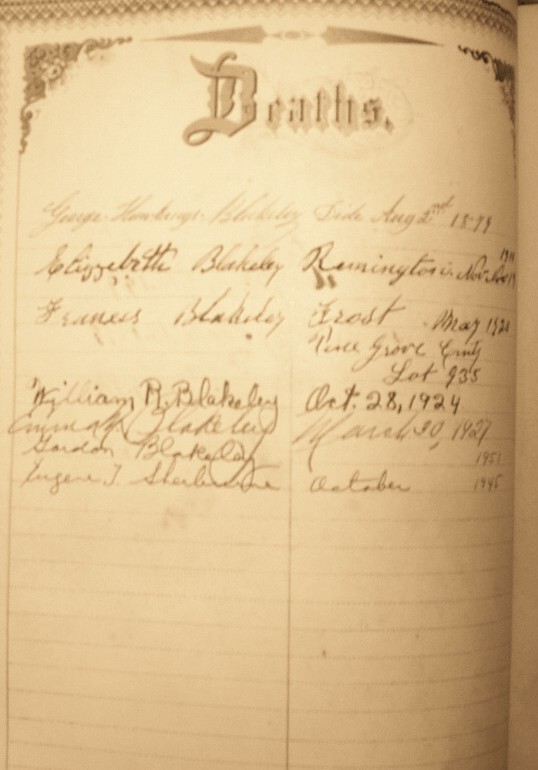 Deaths.
George Hawkings Blakeley Died Aug 2nd 1879
1911
Elizzebith Blakeley Remington Nov
Frances Blakeley Frost May 1920
Pine Grove Cmty
Lot 935
William R. Blakeley Oct. 28, 1924
Emma Blakeley March 30, 1927
Gordon Blakeley 1951
Eugene T. Sherburne October 1945